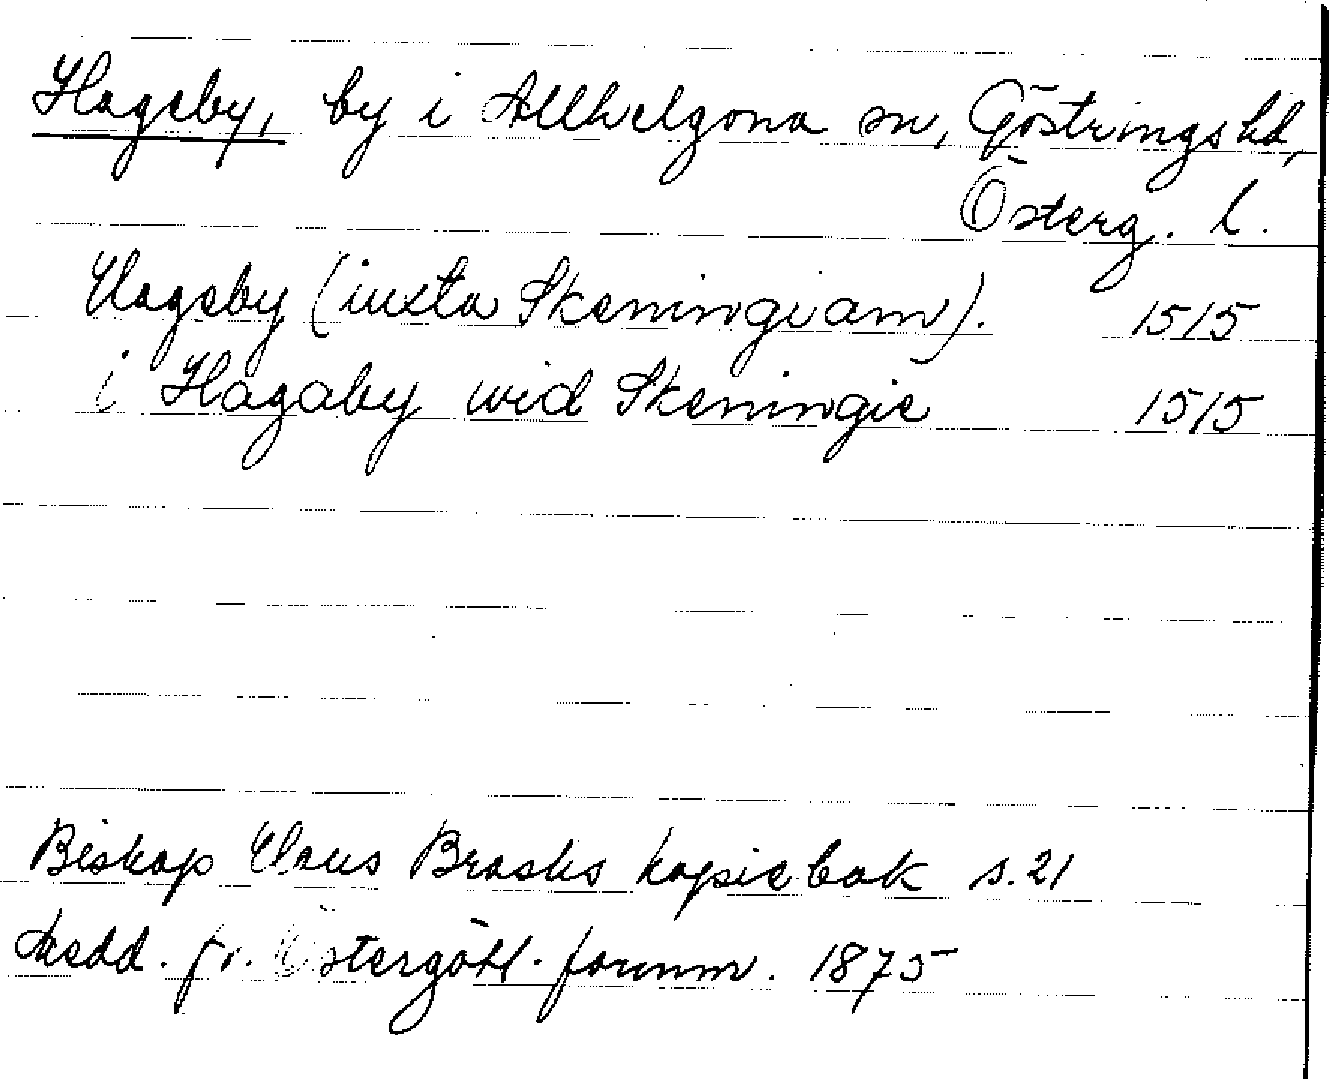 Hageby, by i Allhelgona sn, Göstrings hd,
Österg. l.
Hageby (iuxta Skeningiam). 1515
i Hagaby wid Skeningie 1515
Biskop Hans Brasks kopiebok s. 21
Medd. fr. Östergötl. fornm. 1875